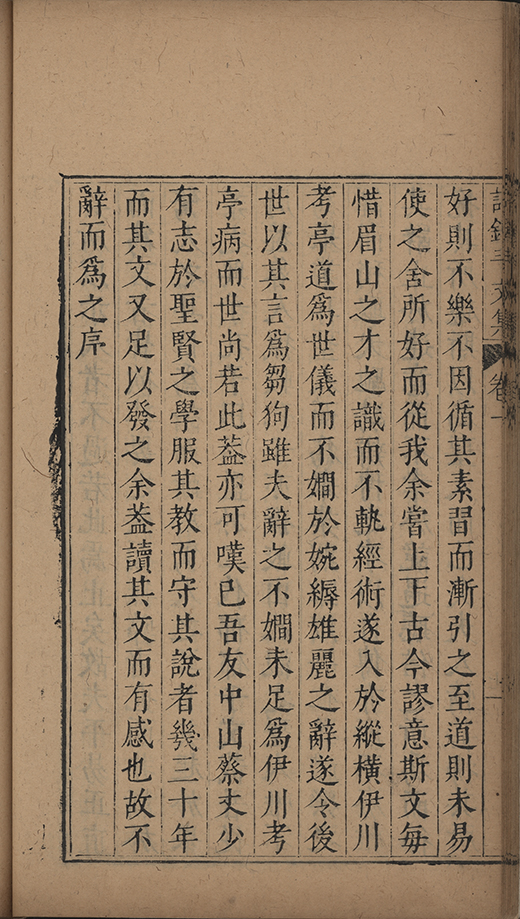 文集 卷一
好則不樂不因循其素習而漸引之至道則未易
使之舍所好而從我余嘗上下古今謬意斯文毎
惜眉山之才之識而不軌經術遂入於縱橫伊川
考亭道爲世儀而不嫺於婉縟雄麗之辭遂令後
世以其言爲芻狗雖夫辭之不嫺未足爲伊川考
亭病而世尚若此葢亦可嘆已吾友中山蔡丈少
有志於聖賢之學服其教而守其說者幾三十年
而其文又足以發之余葢讀其文而有感也故不
辭而爲之序